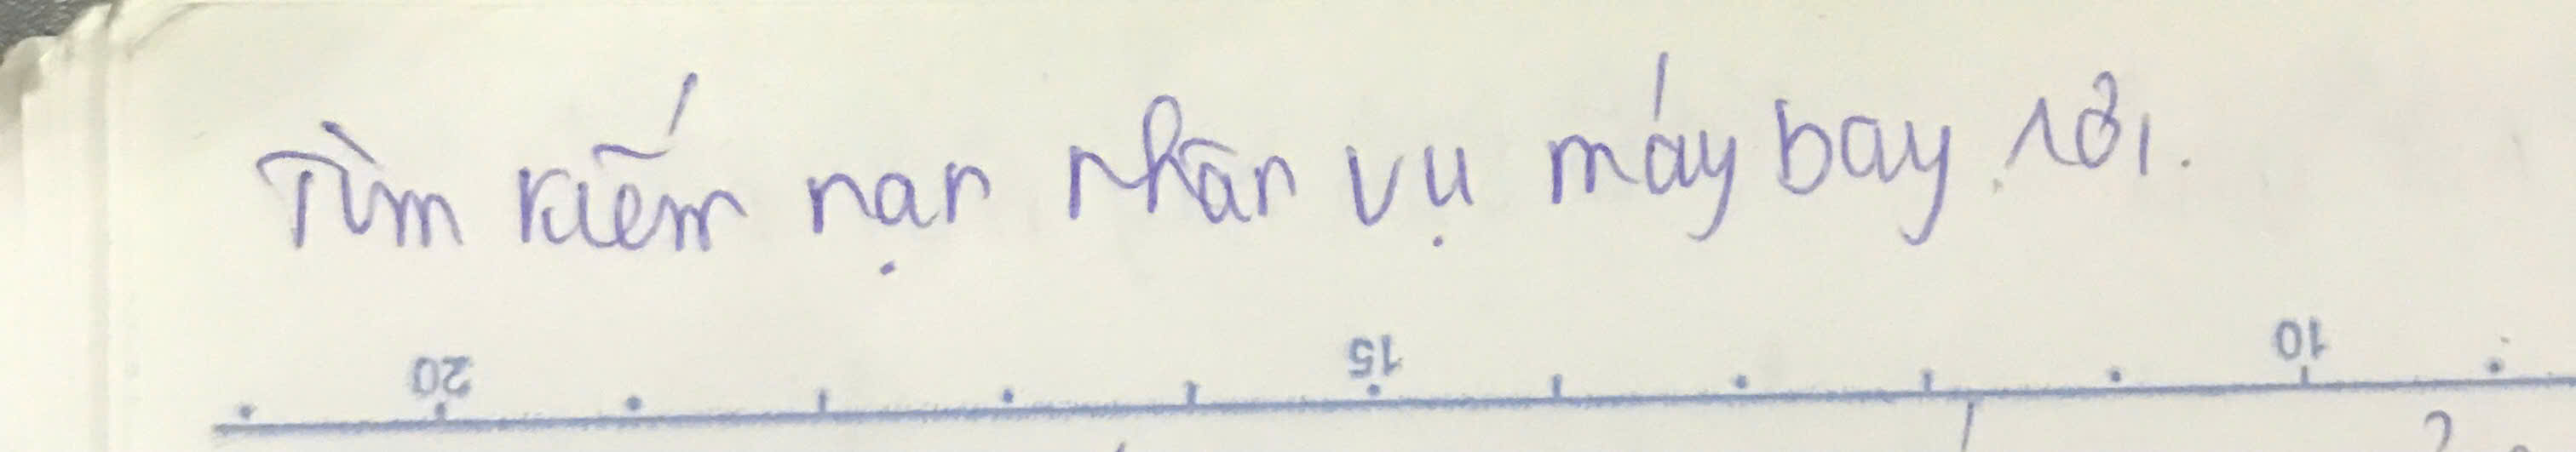 Tìm kiếm nạn nhân vụ máy bay rơi.
20 15 10